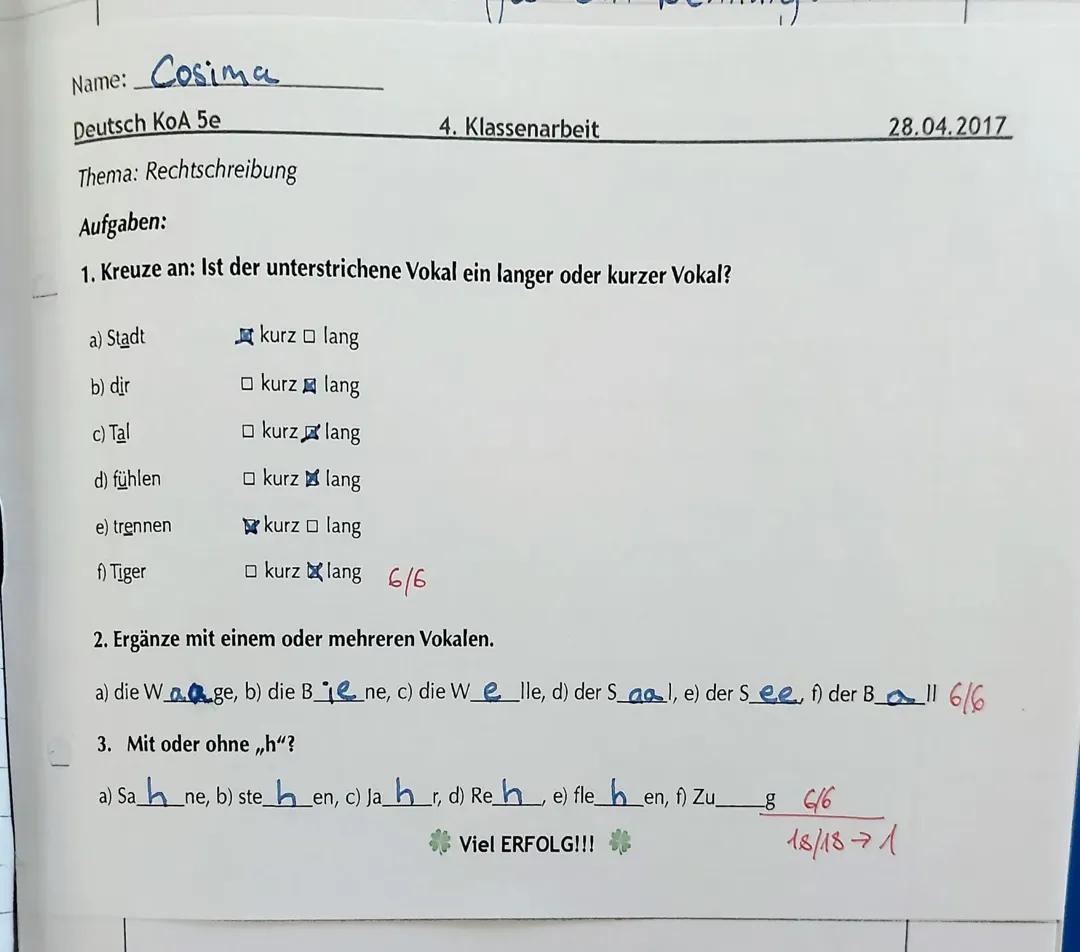 Name: Cosima
Deutsch KoA 5e 4. Klassenarbeit 28.04.2017
Thema: Rechtschreibung
Aufgaben:
1. Kreuze an: Ist der unterstrichene Vokal ein langer oder kurzer Vokal?
a) Stadt ☒ kurz ☐ lang
b) dir ☐ kurz ☒ lang
c) Tal ☐ kurz ☒ lang
d) fühlen ☐ kurz ☒ lang
e) trennen ☒ kurz ☐ lang
f) Tiger ☐ kurz ☒ lang 6/6
2. Ergänze mit einem oder mehreren Vokalen.
a) die W_aa_ge, b) die B_ie_ne, c) die W_e_lle, d) der S_aa_l, e) der S_ee_, f) der B_a_ll 6/6
3. Mit oder ohne „h“?
a) Sa_h_ne, b) ste_h_en, c) Ja_h_r, d) Re_h_, e) fle_h_en, f) Zu____g 6/6
18/18 → 1
Viel ERFOLG!!!